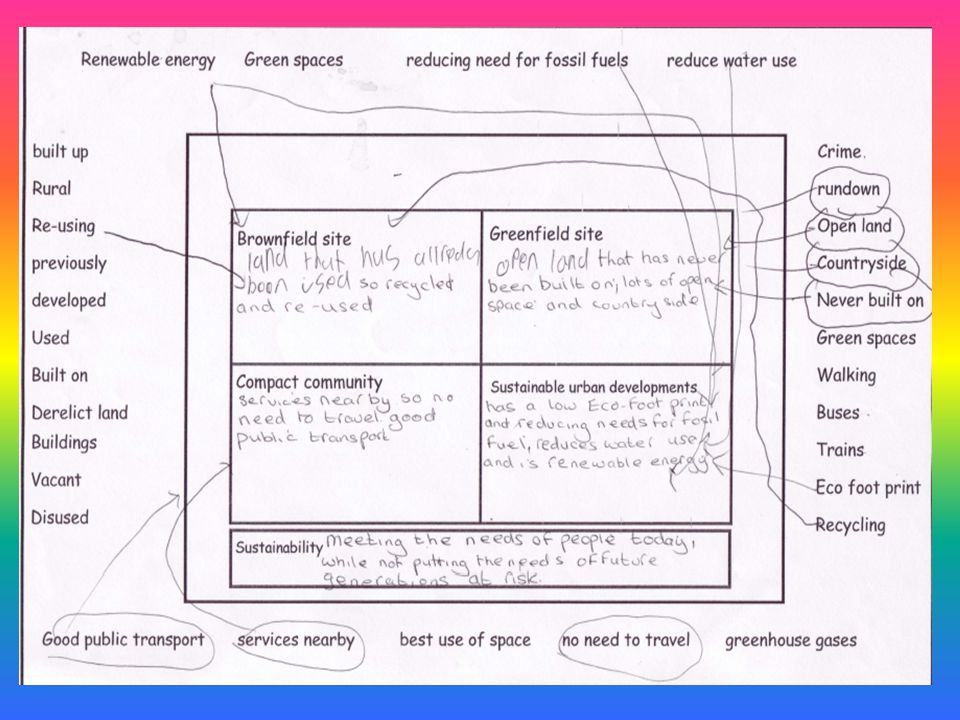 Renewable energy Green spaces reducing need for fossil fuels reduce water use
built up
Rural
Re-using
previously
developed
Used
Built on
Derelict land
Buildings
Vacant
Disused
Brownfield site
land that has allready
been used so recycled
and re-used
Greenfield site
open land that has never
been built on, lots of open
space and country side
Compact community
services nearby so no
need to travel good
public transport
Sustainable urban developments
has a low Eco-foot print
and reducing needs for fosil
fuel, reduces water use
and is renewable energy
Sustainability Meeting the needs of people today,
while not putting the needs of future
generations at risk.
Crime.
rundown
Open land
Countryside
Never built on
Green spaces
Walking
Buses
Trains
Eco foot print
Recycling
Good public transport services nearby best use of space no need to travel greenhouse gases